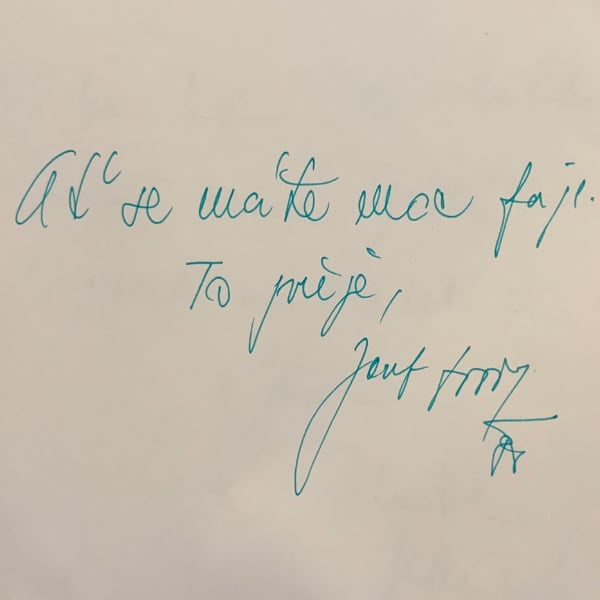 Ať se máte moc fajn.
To přeje,
Josef